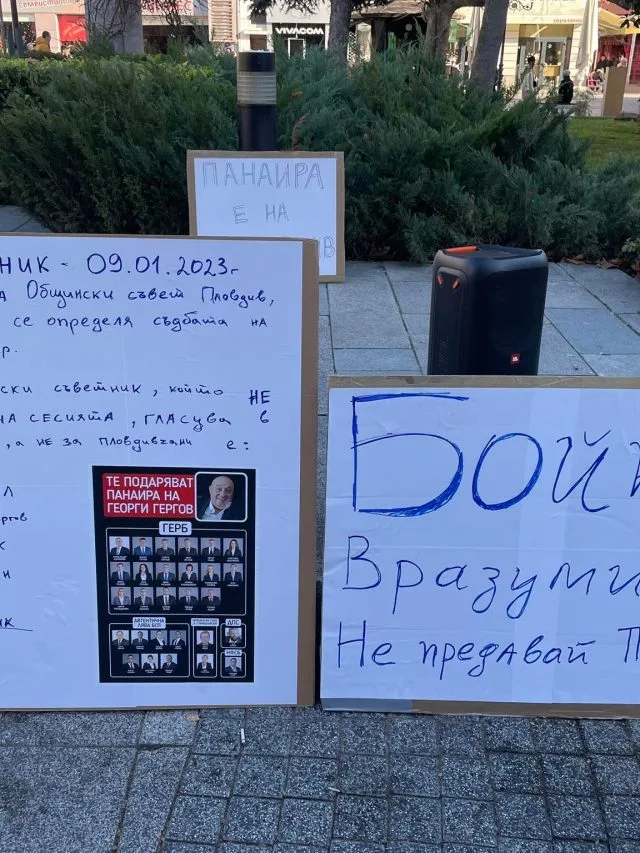 VIVACOM
ПАНАИРА
Е НА
ИВ
НИК - 09.01.2023г
А ОБЩИНСКИ СЪВЕТ ПЛОВДИВ,
СЕ ОПРЕДЕЛЯ СЪДБАТА НА
Р.
СКИ СЪВЕТНИК, КОЙТО НЕ
НА СЕСИЯТА, ГЛАСУВА В
, А НЕ ЗА ПЛОВДИВЧАНИ Е:
Л
К
И
ИК
ТЕ ПОДАРЯВАТ
ПАНАИРА НА
ГЕОРГИ ГЕРГОВ
ГЕРБ
АВТЕНТИЧНА
ЛЯВА БСП
ДПС
НФСБ
JBL
БОЙ
Вразуми
Не предавай П